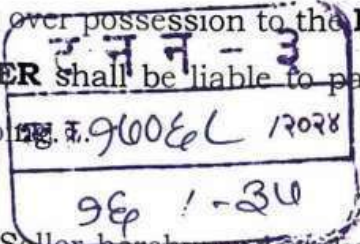 over possession to the
ट न न - ३
ER shall be liable to pa
१७०६८ /२०२४
१६ / - ३५
Seller hereby